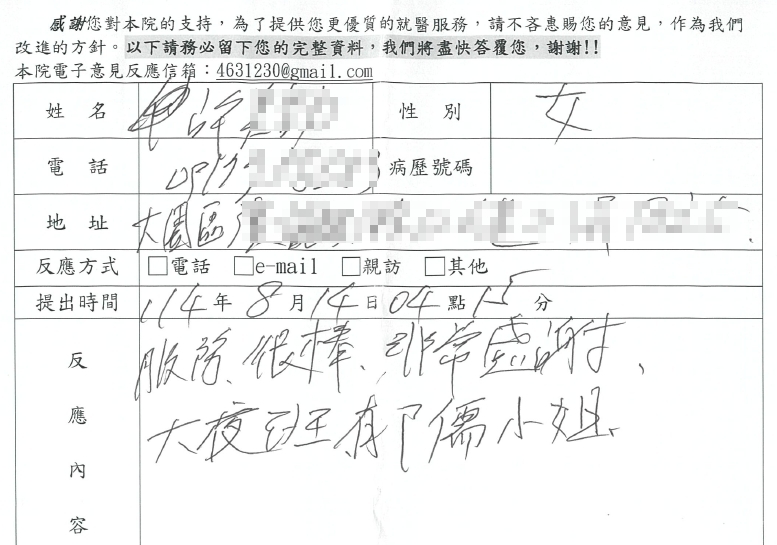 感謝您對本院的支持，為了提供您更優質的就醫服務，請不吝惠賜您的意見，作為我們
改進的方針。以下請務必留下您的完整資料，我們將盡快答覆您，謝謝!!
本院電子意見反應信箱：4631230@gmail.com
姓名 許 性別 女
電話 病歷號碼
地址 大園區
反應方式 □電話 □e-mail □親訪 □其他
提出時間 114年8月14日04點15分
反應內容
服務、很棒、非常感謝、
大夜班有 儒小姐、